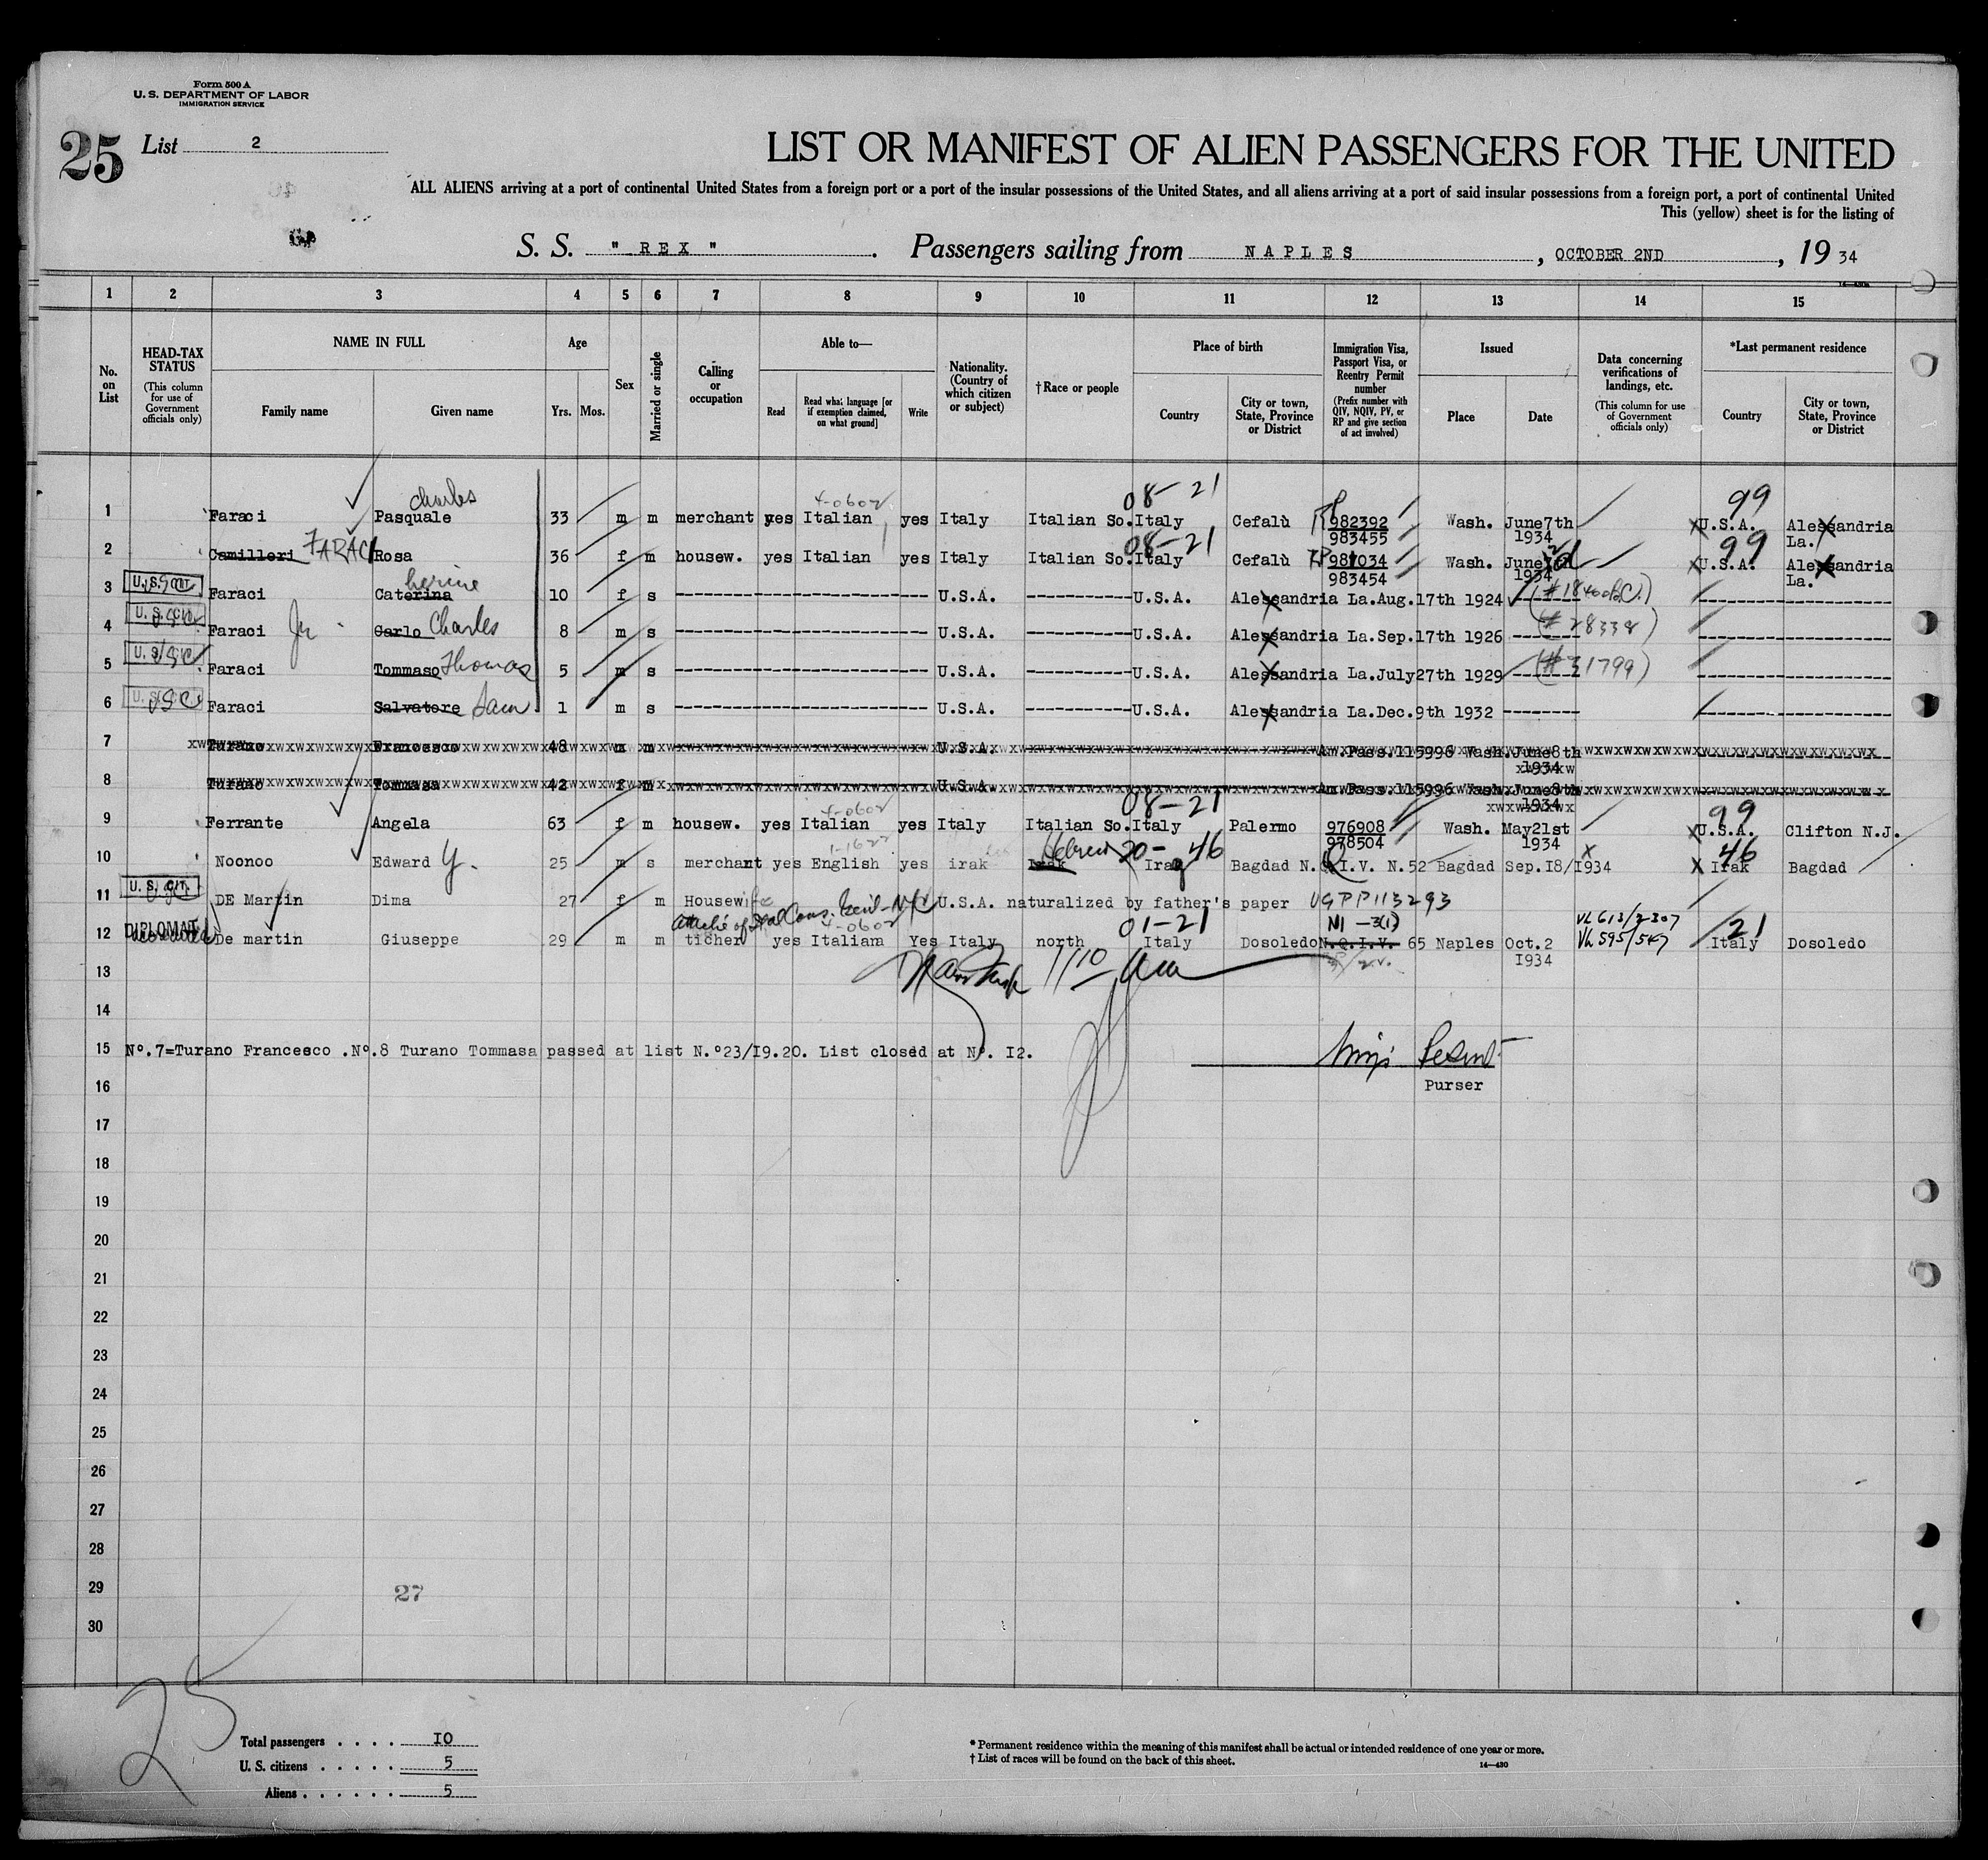 Form 500 A
U. S. DEPARTMENT OF LABOR
IMMIGRATION SERVICE
25 List 2
LIST OR MANIFEST OF ALIEN PASSENGERS FOR THE UNITED
ALL ALIENS arriving at a port of continental United States from a foreign port or a port of the insular possessions of the United States, and all aliens arriving at a port of said insular possessions from a foreign port, a port of continental United
This (yellow) sheet is for the listing of
S. S. " REX " . Passengers sailing from NAPLES , OCTOBER 2ND , 19 34
1 2 3 4 5 6 7 8 9 10 11 12 13 14 15
No. on List
HEAD-TAX STATUS (This column for use of Government officials only)
NAME IN FULL
Family name Given name
Age
Yrs. Mos.
Sex
Married or single
Calling or occupation
Able to—
Read Read what language [or if exemption claimed, on what ground] Write
Nationality. (Country of which citizen or subject)
†Race or people
Place of birth
Country City or town, State, Province or District
Immigration Visa, Passport Visa, or Reentry Permit number (Prefix number with QIV, NQIV, PV, or RP and give section of act involved)
Issued
Place Date
Data concerning verifications of landings, etc. (This column for use of Government officials only)
*Last permanent residence
Country City or town, State, Province or District
Charles 4-0602 08-21 99
1 Faraci Pasquale 33 m m merchant yes Italian yes Italy Italian So. Italy Cefalù 982392 Wash. June7th U.S.A. Alessandria
983455 1934 La.
08-21 99
2 Camilleri FARACI Rosa 36 f m housew. yes Italian yes Italy Italian So. Italy Cefalù 981034 Wash. June U.S.A. Alessandria
983454 1934 La.
3 U.S. CIT. Faraci Caterina herine 10 f s U.S.A. U.S.A. Alessandria La. Aug.17th 1924
4 U.S. CIT. Faraci Jr. Carlo Charles 8 m s U.S.A. U.S.A. Alessandria La. Sep.17th 1926 (#28338)
5 U.S. Faraci Tommaso Thomas 5 m s U.S.A. U.S.A. Alessandria La. July27th 1929 (#31799)
6 U.S. Faraci Salvatore Sam 1 m s U.S.A. U.S.A. Alessandria La. Dec.9th 1932
7 Turano Francesco 48 m m U.S.A. Am Pass.115996 Wash. June8th
1934
8 Turano Tommasa 42 f m U.S.A. Am Pass.115996 Wash. June8th
1934
4-0602 08-21 99
9 Ferrante Angela 63 f m housew. yes Italian yes Italy Italian So. Italy Palermo 976908 Wash. May21st U.S.A. Clifton N.J.
978504 1934
Hebrew 20-46 46
10 Noonoo Edward Y. 25 m s merchant yes English yes irak Irak Iraq Bagdad N.Q.I.V. N.52 Bagdad Sep.18/1934 Irak Bagdad
11 U. S. CIT. DE Martin Dima 27 f m Housewife U.S.A. naturalized by father's paper USPP113293
4-0602 01-21 N1 -3(1) VL 613/2307 21
12 DIPLOMAT De martin Giuseppe 29 m m ticher yes Italiam Yes Italy north Italy Dosoledo N.Q.I.V. 65 Naples Oct.2 VL 595/547 Italy Dosoledo
1934
13
14
15 Nº.7=Turano Francesco .Nº.8 Turano Tommasa passed at list N.º23/I9.20. List closed at Nº. I2.
16 Purser
17
18
19
20
21
22
23
24
25
26
27
28
29 27
30
25
Total passengers . . . . IO
U. S. citizens . . . . . 5
Aliens . . . . . . 5
* Permanent residence within the meaning of this manifest shall be actual or intended residence of one year or more.
† List of races will be found on the back of this sheet.
14—430